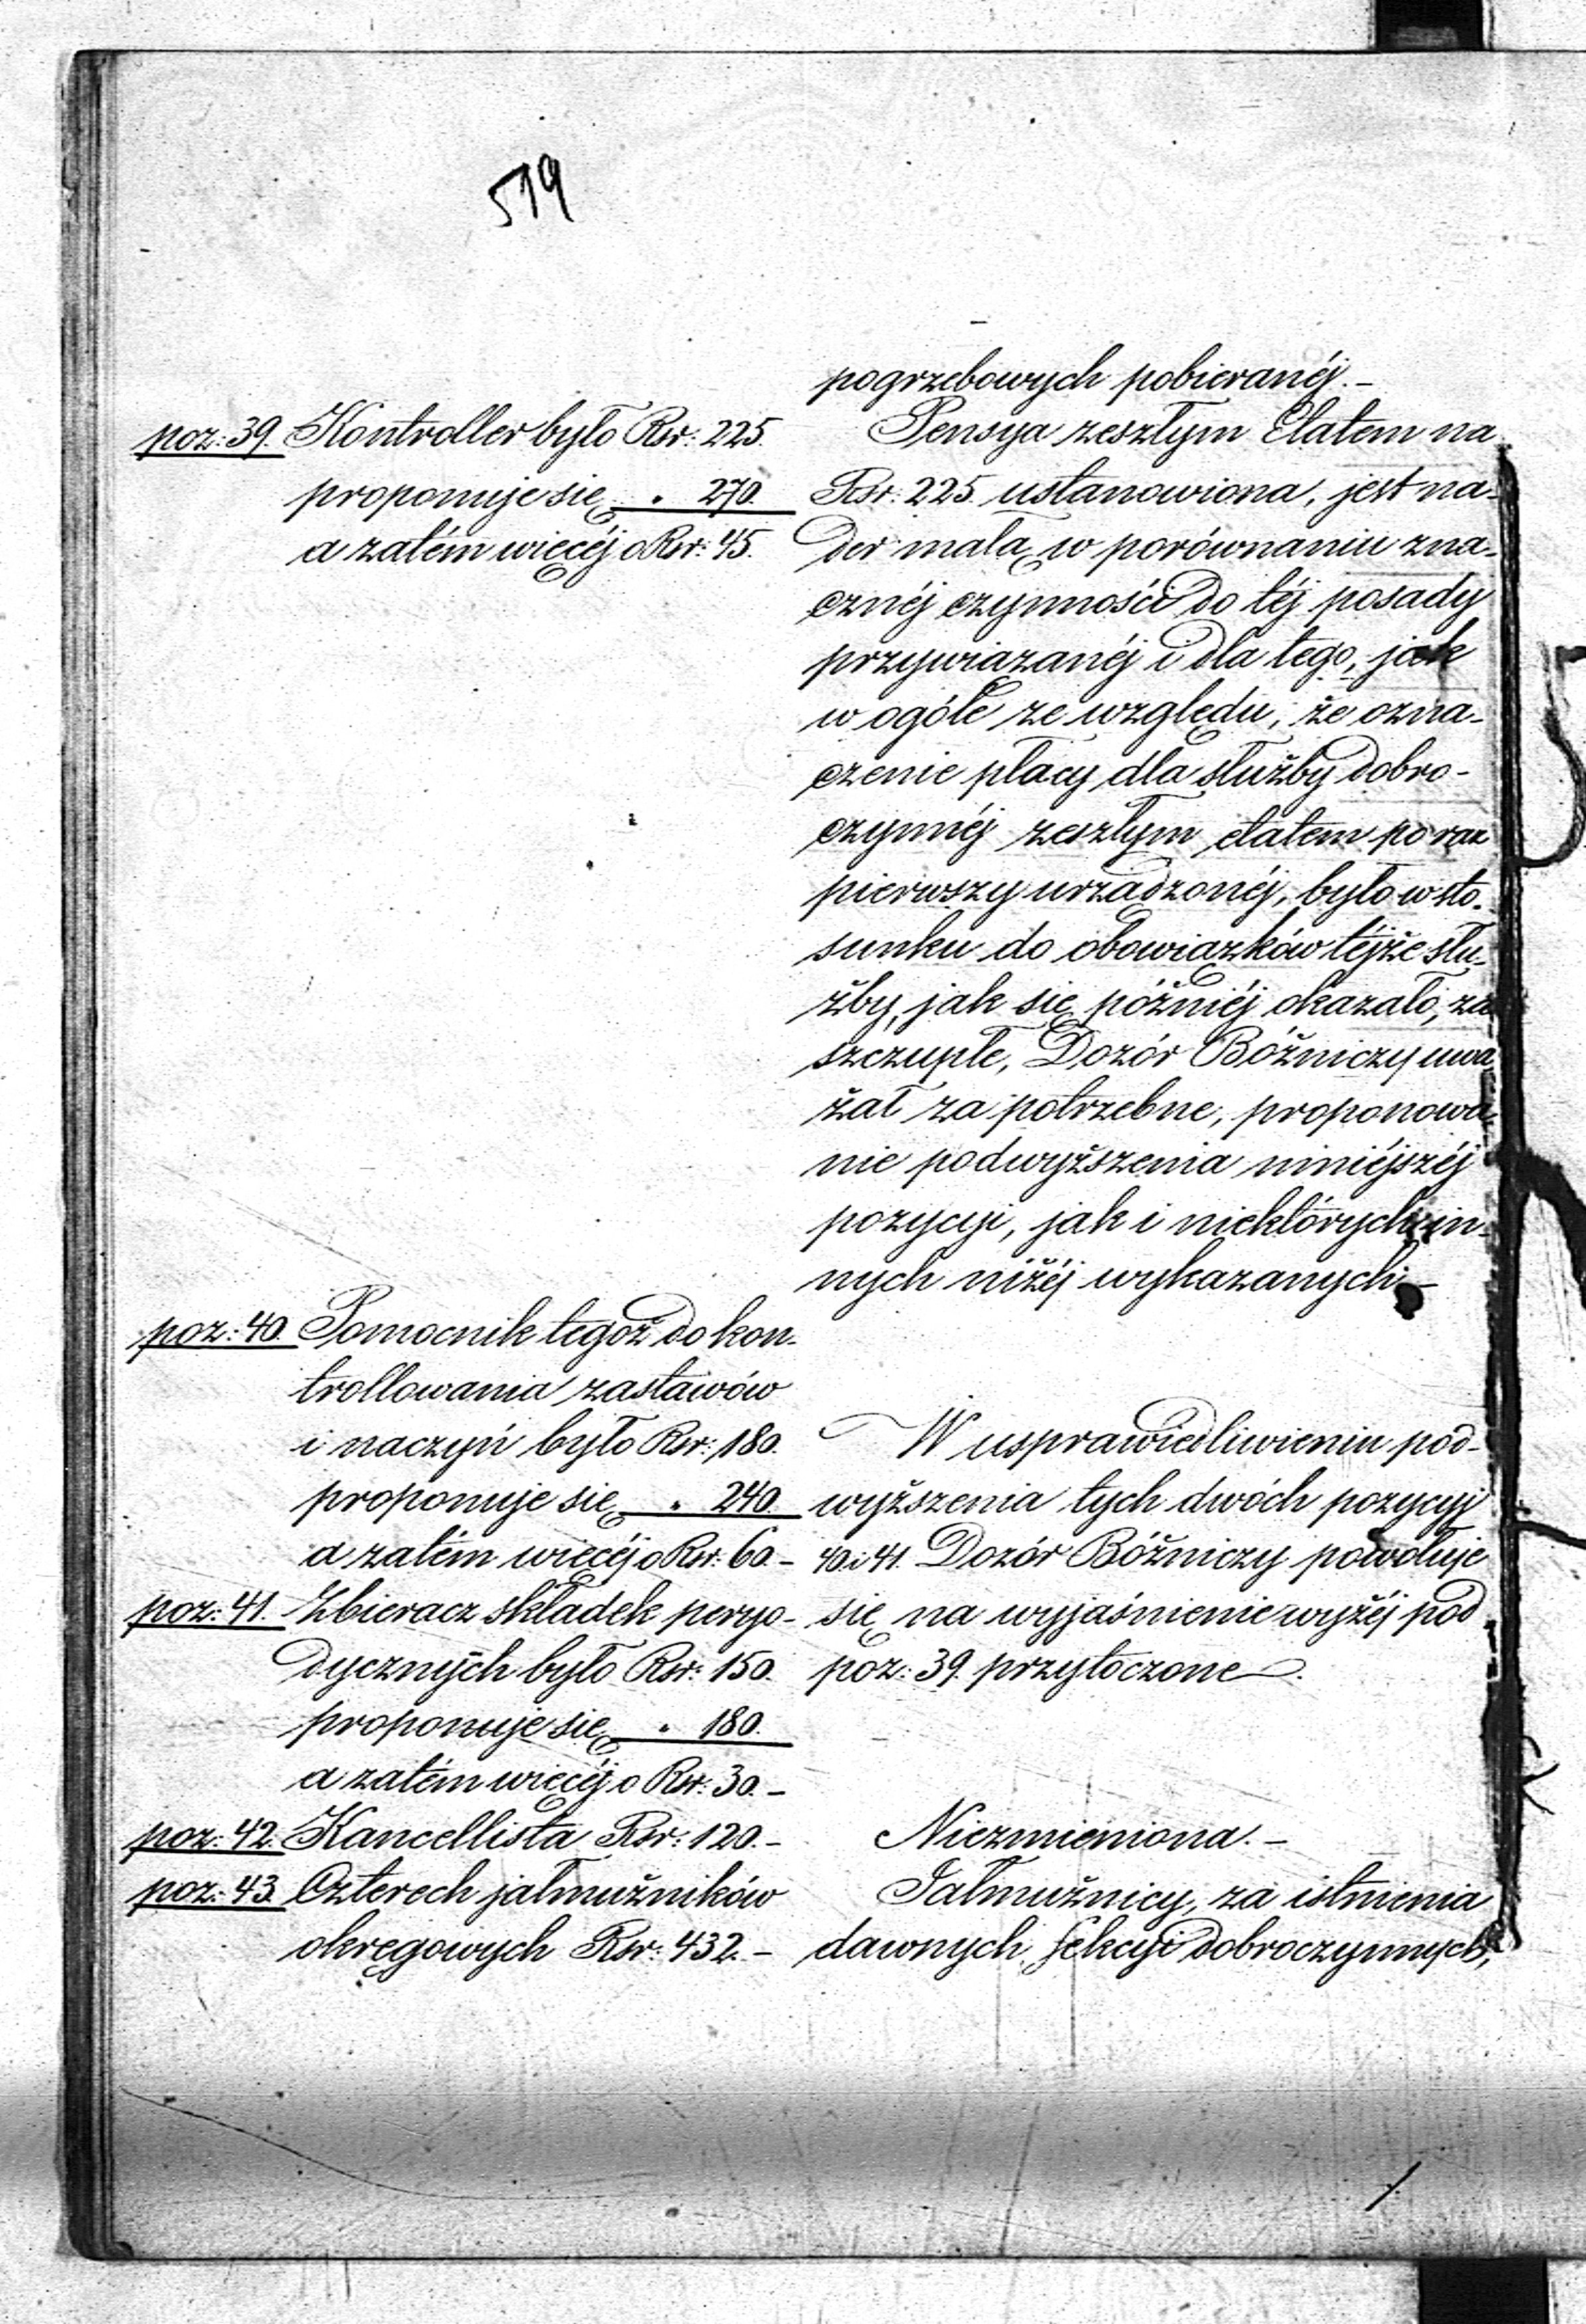 519
pogrzebowych pobieranéj.-
poz: 39. Kontroller było Rsr: 225.
proponuje się " 270.
a zatém więcéj o Rsr: 45.
Pensya zeszłym Etatem na
Rsr: 225 ustanowiona, jest na-
der małą w porównaniu zna-
cznéj czynności do téj posady
przywiązanéj i dla tego, jak
w ogóle ze względu, że ozna-
czenie płacy dla służby dobro-
czynnéj zeszłym etatem po raz
pierwszy urządzonéj, było w sto-
sunku do obowiązków téjże słu-
żby, jak się późniéj okazało, za
szczupłe, Dozór Bóżniczy uwa
żał za potrzebne, proponowa-
nie podwyższenia niniéjszéj
pozycyi, jak i niektórych in-
nych niżéj wykazanych.-
poz: 40. Pomocnik tegoż do kon-
trollowania zastawów
i naczyń było Rsr: 180.
proponuje się " 240.
a zatém więcéj o Rsr: 60.-
poz: 41. Zbieracz składek peryo-
dycznych było Rsr: 150.
proponuje się " 180.
a zatém więcéj o Rsr: 30.-
W usprawiedliwieniu pod-
wyższenia tych dwóch pozycyi
40 i 41. Dozór Bóżniczy powołuje
się na wyjaśnienie wyżéj pod
poz: 39. przytoczone.
poz: 42. Kancellista Rsr: 120.-
Niezmieniona.-
poz: 43. Czterech jałmużników
okręgowych Rsr: 432.-
Jałmużnicy, za istnienia
dawnych sekcyi dobroczynnych,